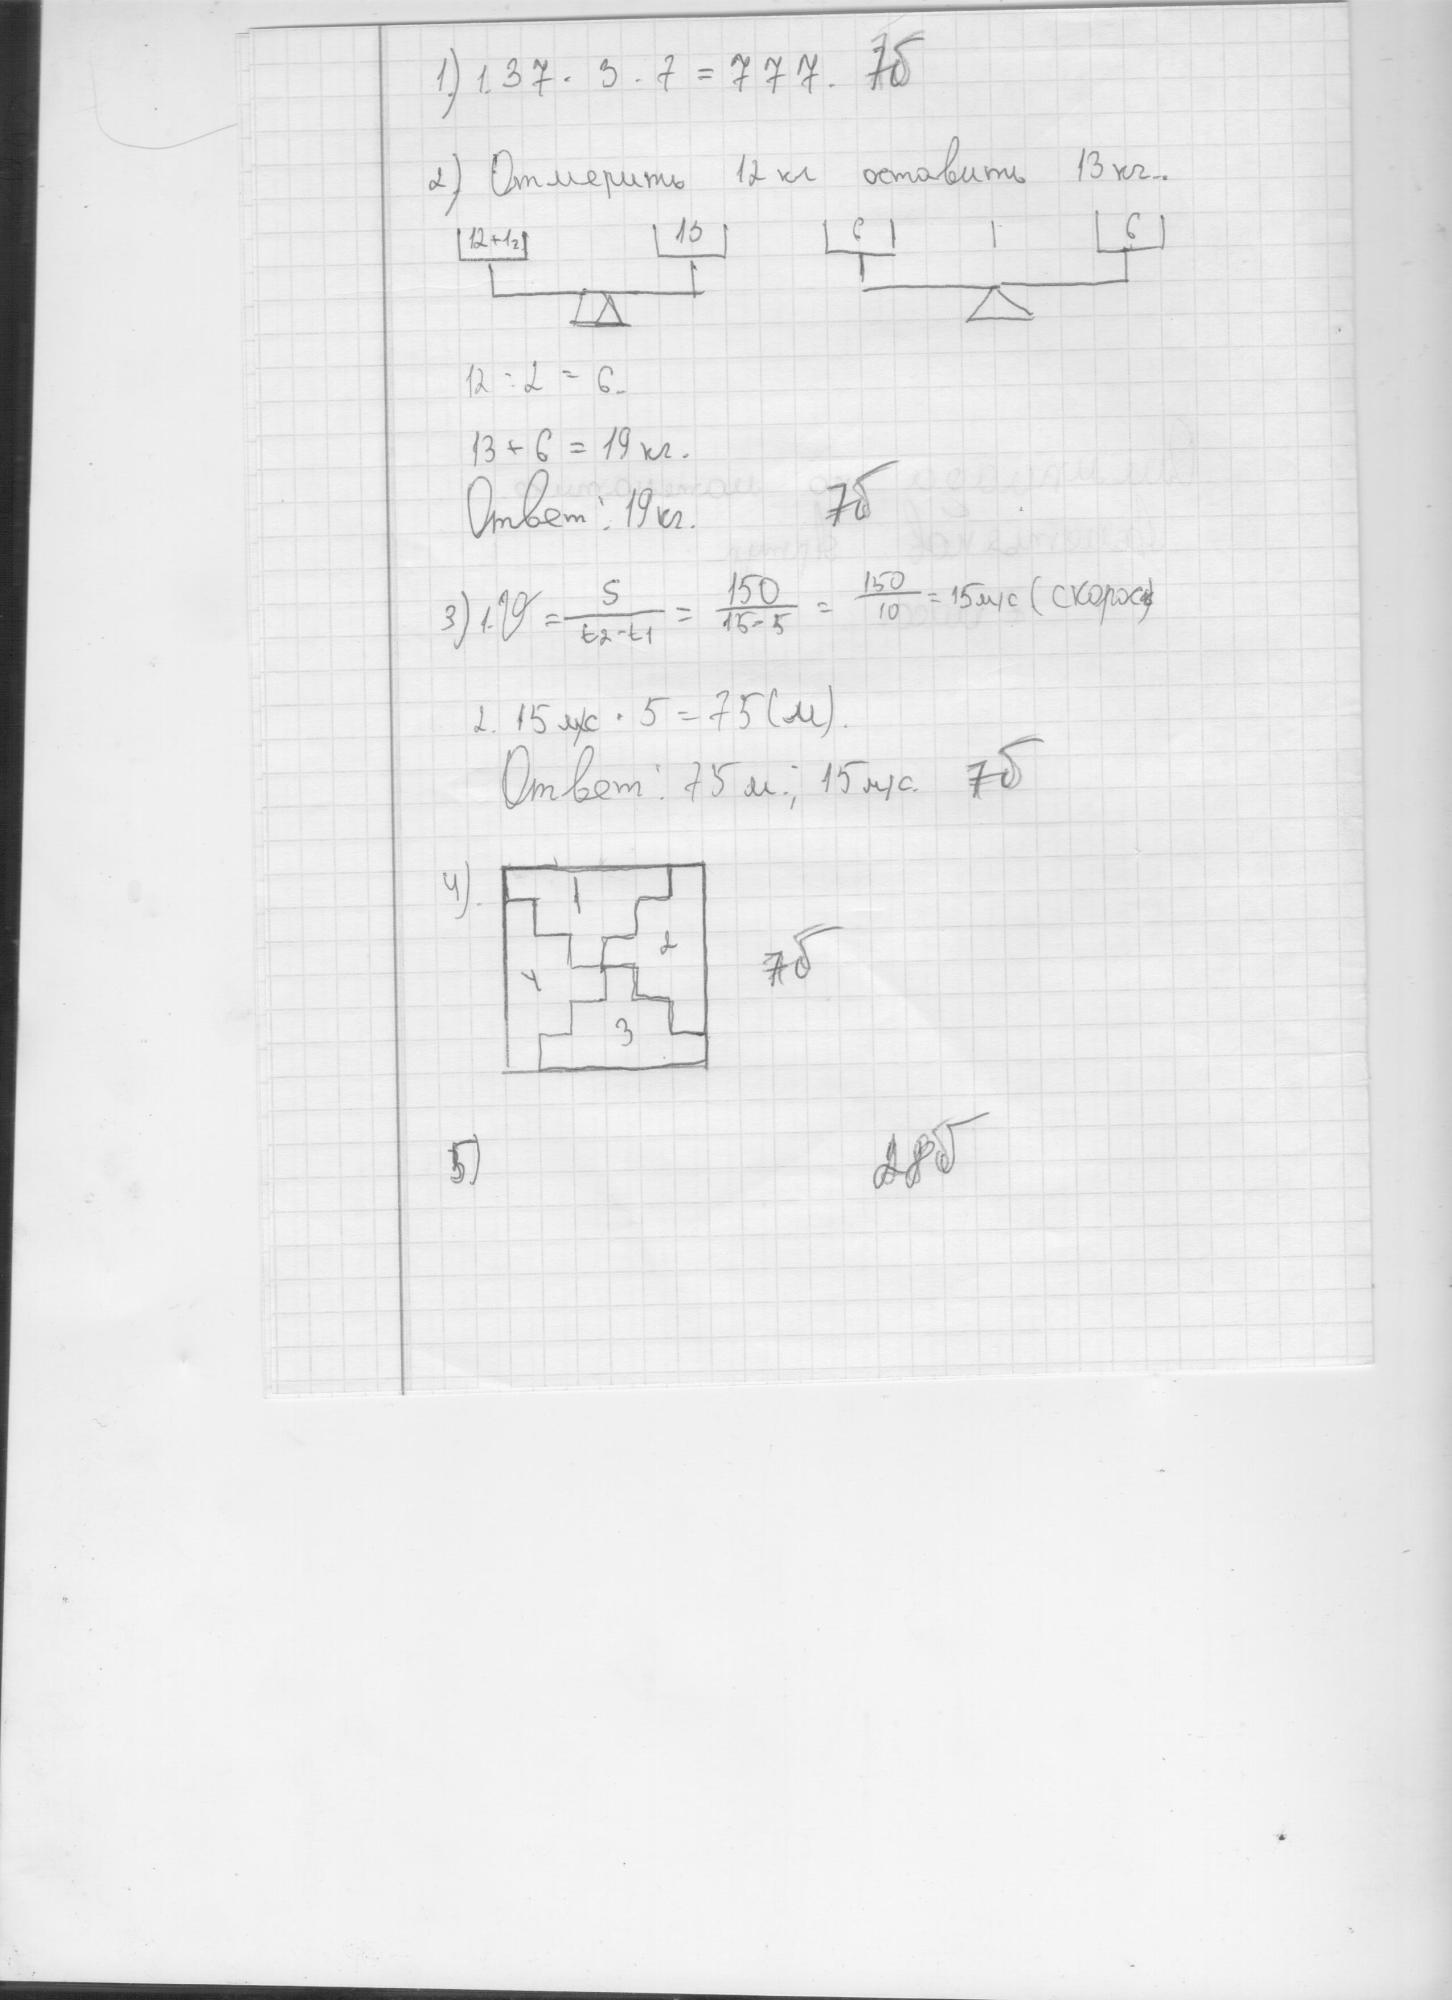 1.) 1. 37 · 3 · 7 = 777. 7б
2) Отмерить 12 кг оставить 13 кг.
12+1 13 6 6
12 : 2 = 6.
13 + 6 = 19 кг.
Ответ: 19 кг. 7б
3) 1. V = S/(t2-t1) = 150/(15-5) = 150/10 = 15 м/с (скорость)
2. 15 м/с · 5 = 75 (м).
Ответ: 75 м.; 15 м/с. 7б
4).
1
2
4
7б
3
5) 28б